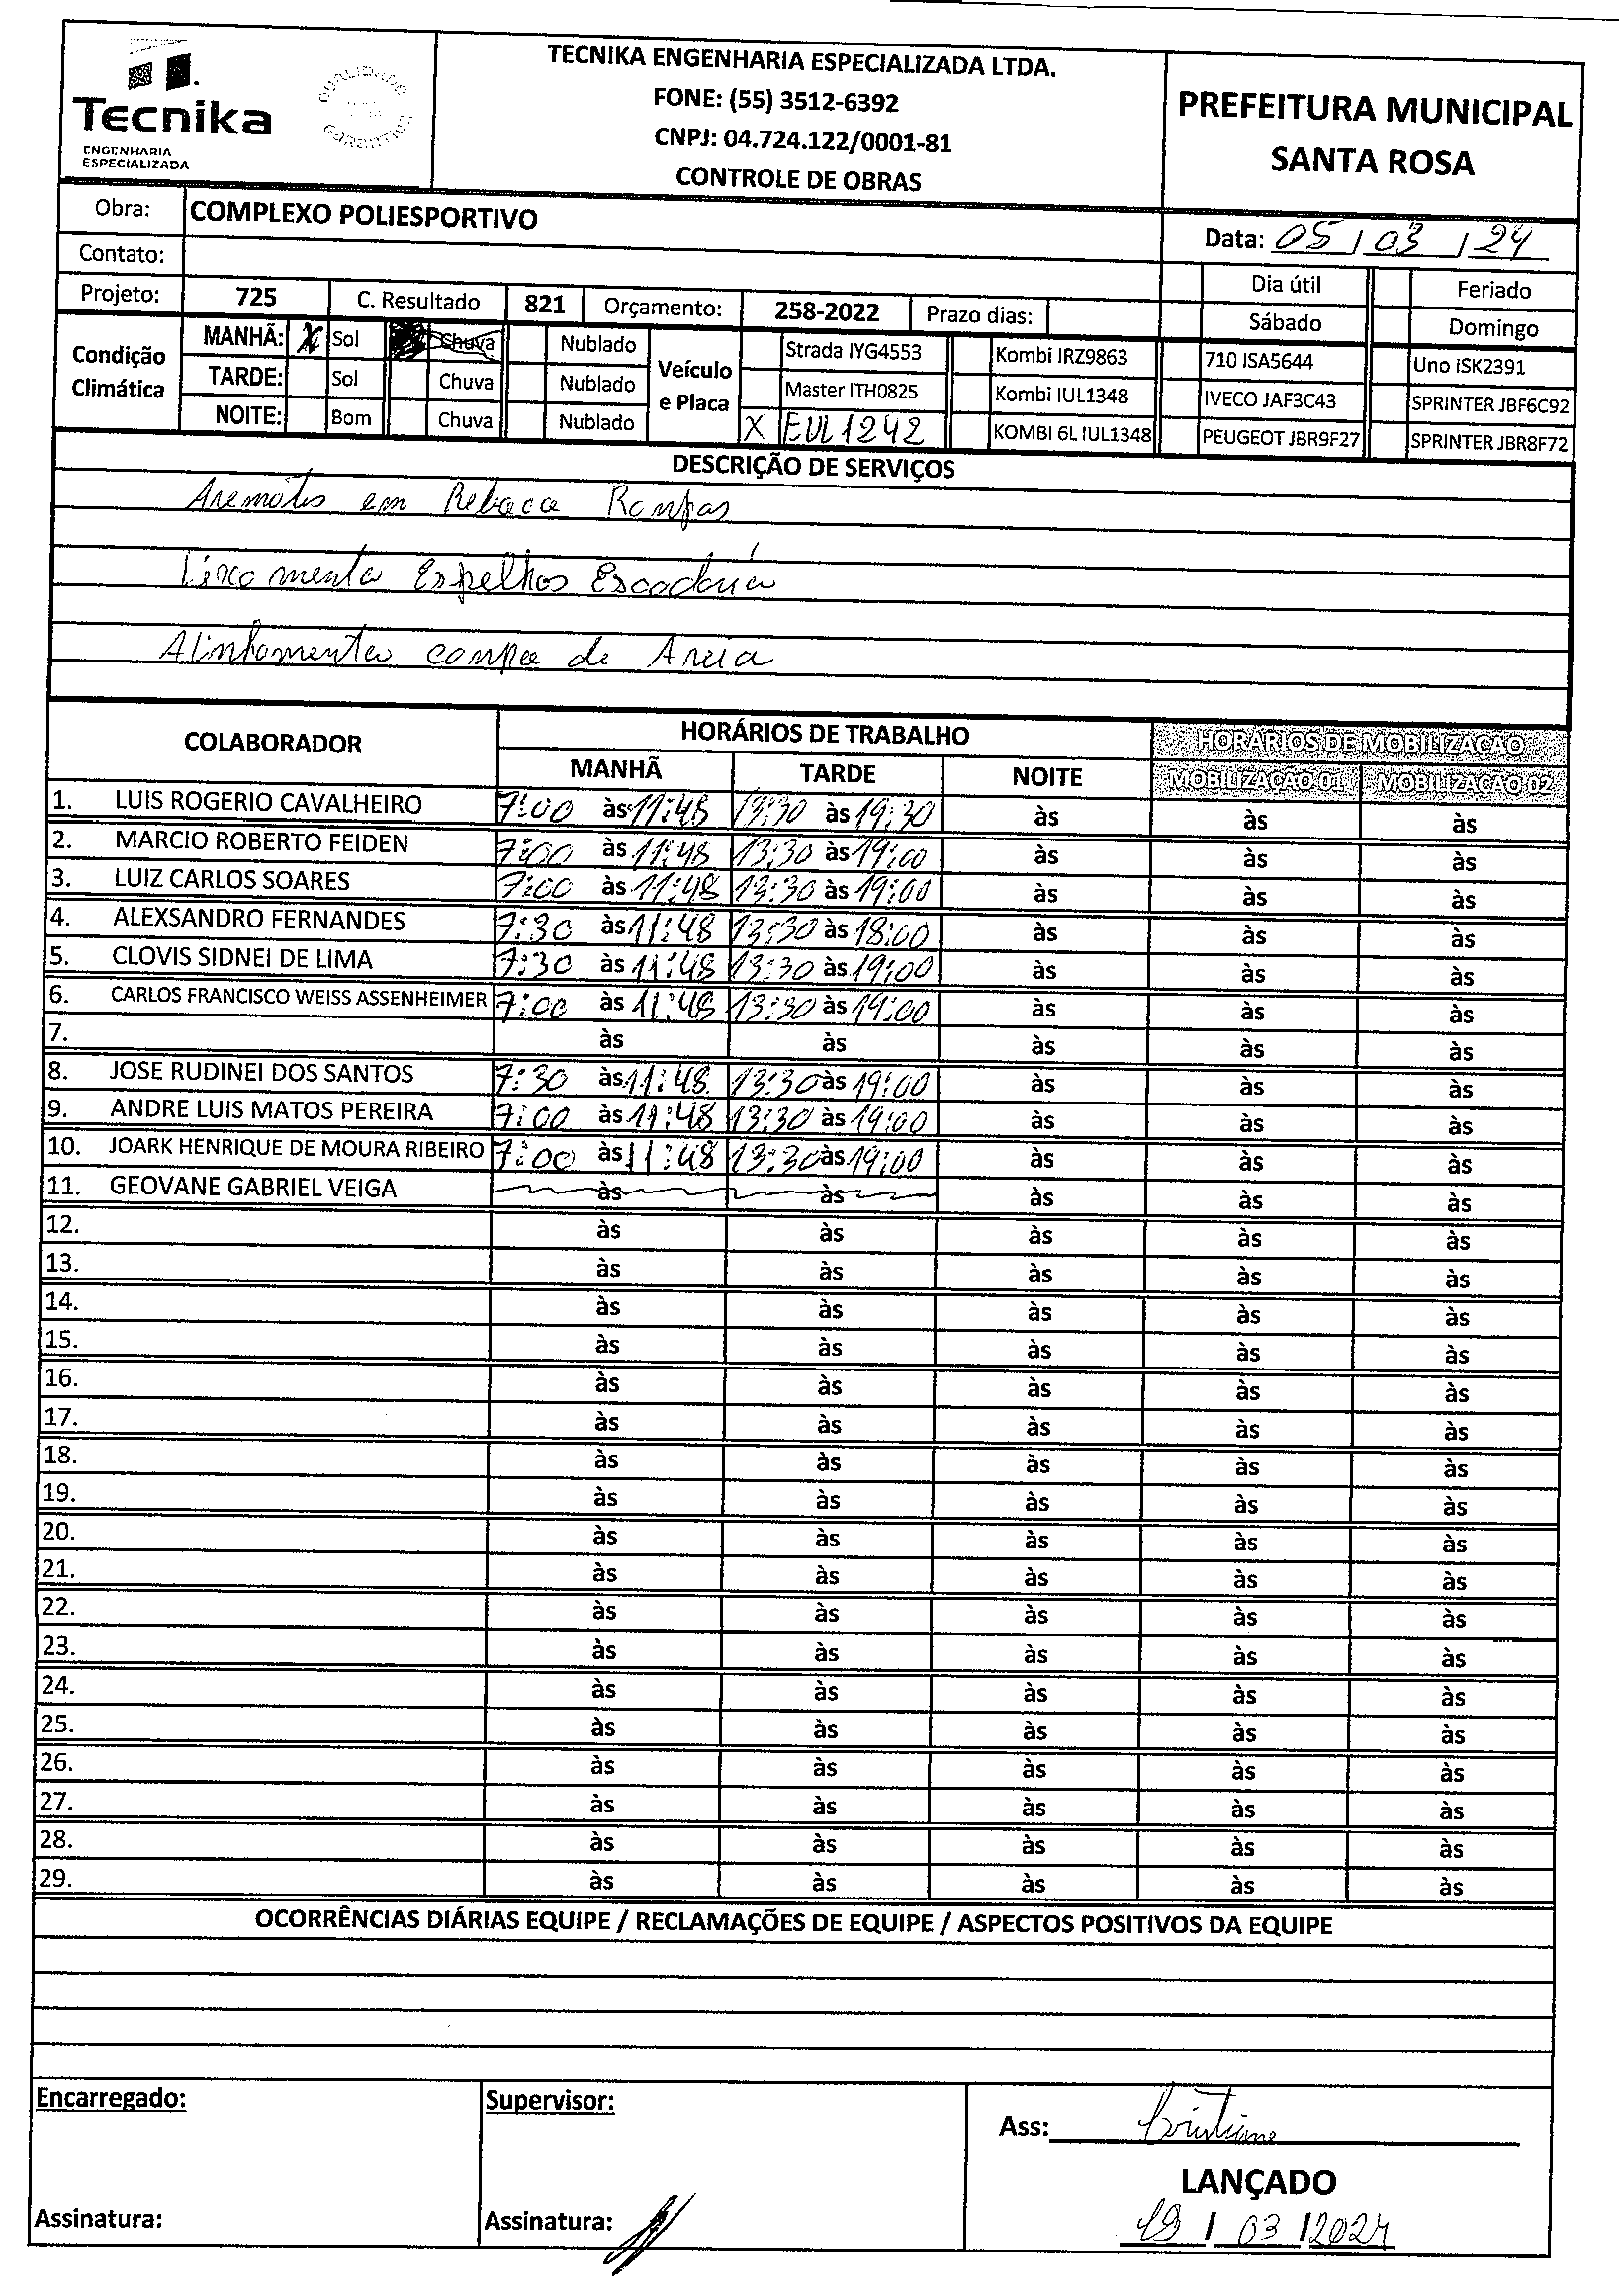 Tecnika
ENGENHARIA
ESPECIALIZADA
TECNIKA ENGENHARIA ESPECIALIZADA LTDA.
FONE: (55) 3512-6392
CNPJ: 04.724.122/0001-81
CONTROLE DE OBRAS
PREFEITURA MUNICIPAL
SANTA ROSA
Obra: COMPLEXO POLIESPORTIVO
Data: 05/03/24
Contato:
Dia útil Feriado
Projeto: 725 C. Resultado 821 Orçamento: 258-2022 Prazo dias:
Sábado Domingo
Condição Climática
MANHÃ: X Sol Chuva Nublado
TARDE: Sol Chuva Nublado
NOITE: Bom Chuva Nublado
Veículo e Placa
Strada IYG4553 Kombi IRZ9863 710 ISA5644 Uno iSK2391
Master ITH0825 Kombi IUL1348 IVECO JAF3C43 SPRINTER JBF6C92
X EUL1242 KOMBI 6L IUL1348 PEUGEOT JBR9F27 SPRINTER JBR8F72
DESCRIÇÃO DE SERVIÇOS
em Reboco Rampas
Espelhos Escadaria
Alinhamento campo de Areia
COLABORADOR HORÁRIOS DE TRABALHO HORÁRIOS DE MOBILIZAÇÃO
MANHÃ TARDE NOITE MOBILIZAÇÃO 01 MOBILIZAÇÃO 02
1. LUIS ROGERIO CAVALHEIRO 7:00 às 11:48 13:30 às 19:30 às às às
2. MARCIO ROBERTO FEIDEN 7:00 às 11:48 13:30 às 19:00 às às às
3. LUIZ CARLOS SOARES 7:00 às 11:48 13:30 às 19:00 às às às
4. ALEXSANDRO FERNANDES 7:30 às 11:48 13:30 às 18:00 às às às
5. CLOVIS SIDNEI DE LIMA 7:30 às 11:48 13:30 às 19:00 às às às
6. CARLOS FRANCISCO WEISS ASSENHEIMER 7:00 às 11:48 13:30 às 19:00 às às às
7. às às às às às
8. JOSE RUDINEI DOS SANTOS 7:30 às 11:48 13:30 às 19:00 às às às
9. ANDRE LUIS MATOS PEREIRA 7:00 às 11:48 13:30 às 19:00 às às às
10. JOARK HENRIQUE DE MOURA RIBEIRO 7:00 às 11:48 13:30 às 19:00 às às às
11. GEOVANE GABRIEL VEIGA às às às às às
12. às às às às às
13. às às às às às
14. às às às às às
15. às às às às às
16. às às às às às
17. às às às às às
18. às às às às às
19. às às às às às
20. às às às às às
21. às às às às às
22. às às às às às
23. às às às às às
24. às às às às às
25. às às às às às
26. às às às às às
27. às às às às às
28. às às às às às
29. às às às às às
OCORRÊNCIAS DIÁRIAS EQUIPE / RECLAMAÇÕES DE EQUIPE / ASPECTOS POSITIVOS DA EQUIPE
Encarregado: Supervisor:
Ass: Cristiane
LANÇADO
Assinatura: Assinatura:
19/03/2024